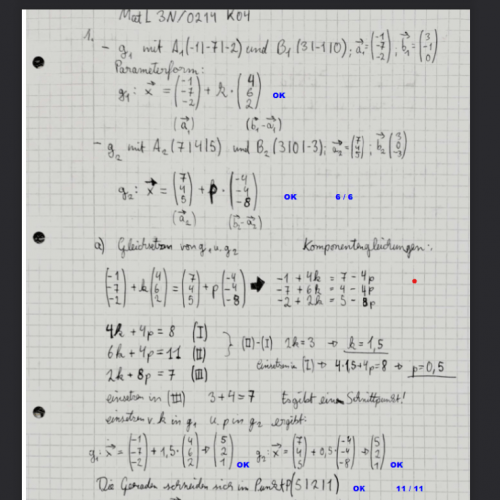 Mat L 3N/0214 K04
1. - g₁ mit A₁(-1|-7|-2) und B₁(3|-1|0); a⃗₁=(-1 -7 -2); b⃗₁=(3 -1 0)
Parameterform:
g₁: x⃗ = (-1 -7 -2) + k · (4 6 2) OK
(a⃗₁) (b⃗₁-a⃗₁)
- g₂ mit A₂(7|4|5) und B₂(3|0|-3); a⃗₂=(7 4 5); b⃗₂(3 0 -3)
g₂: x⃗ = (7 4 5) + p · (-4 -4 -8) OK 6 / 6
(a⃗₂) (b⃗₂-a⃗₂)
a) Gleichsetzen von g₁ u. g₂ Komponentengleichungen:
(-1 -7 -2) + k(4 6 2) = (7 4 5) + p(-4 -4 -8) ➔
-1 + 4k = 7 - 4p
-7 + 6k = 4 - 4p
-2 + 2k = 5 - 8p
4k + 4p = 8 (I)
6k + 4p = 11 (II) } (II)-(I) 2k = 3 → k = 1,5
2k + 8p = 7 (III) einsetzen in (I) 4·1,5+4p=8 → p=0,5
einsetzen in (III) 3 + 4 = 7 Es gibt einen Schnittpunkt!
einsetzen v. k in g₁ u. p in g₂ ergibt:
g₁: x⃗ = (-1 -7 -2) + 1,5 · (4 6 2) = (5 2 1) OK g₂: x⃗ = (7 4 5) + 0,5 · (-4 -4 -8) = (5 2 1) OK
Die Geraden schneiden sich in Punkt P(5|2|1) OK 11 / 11